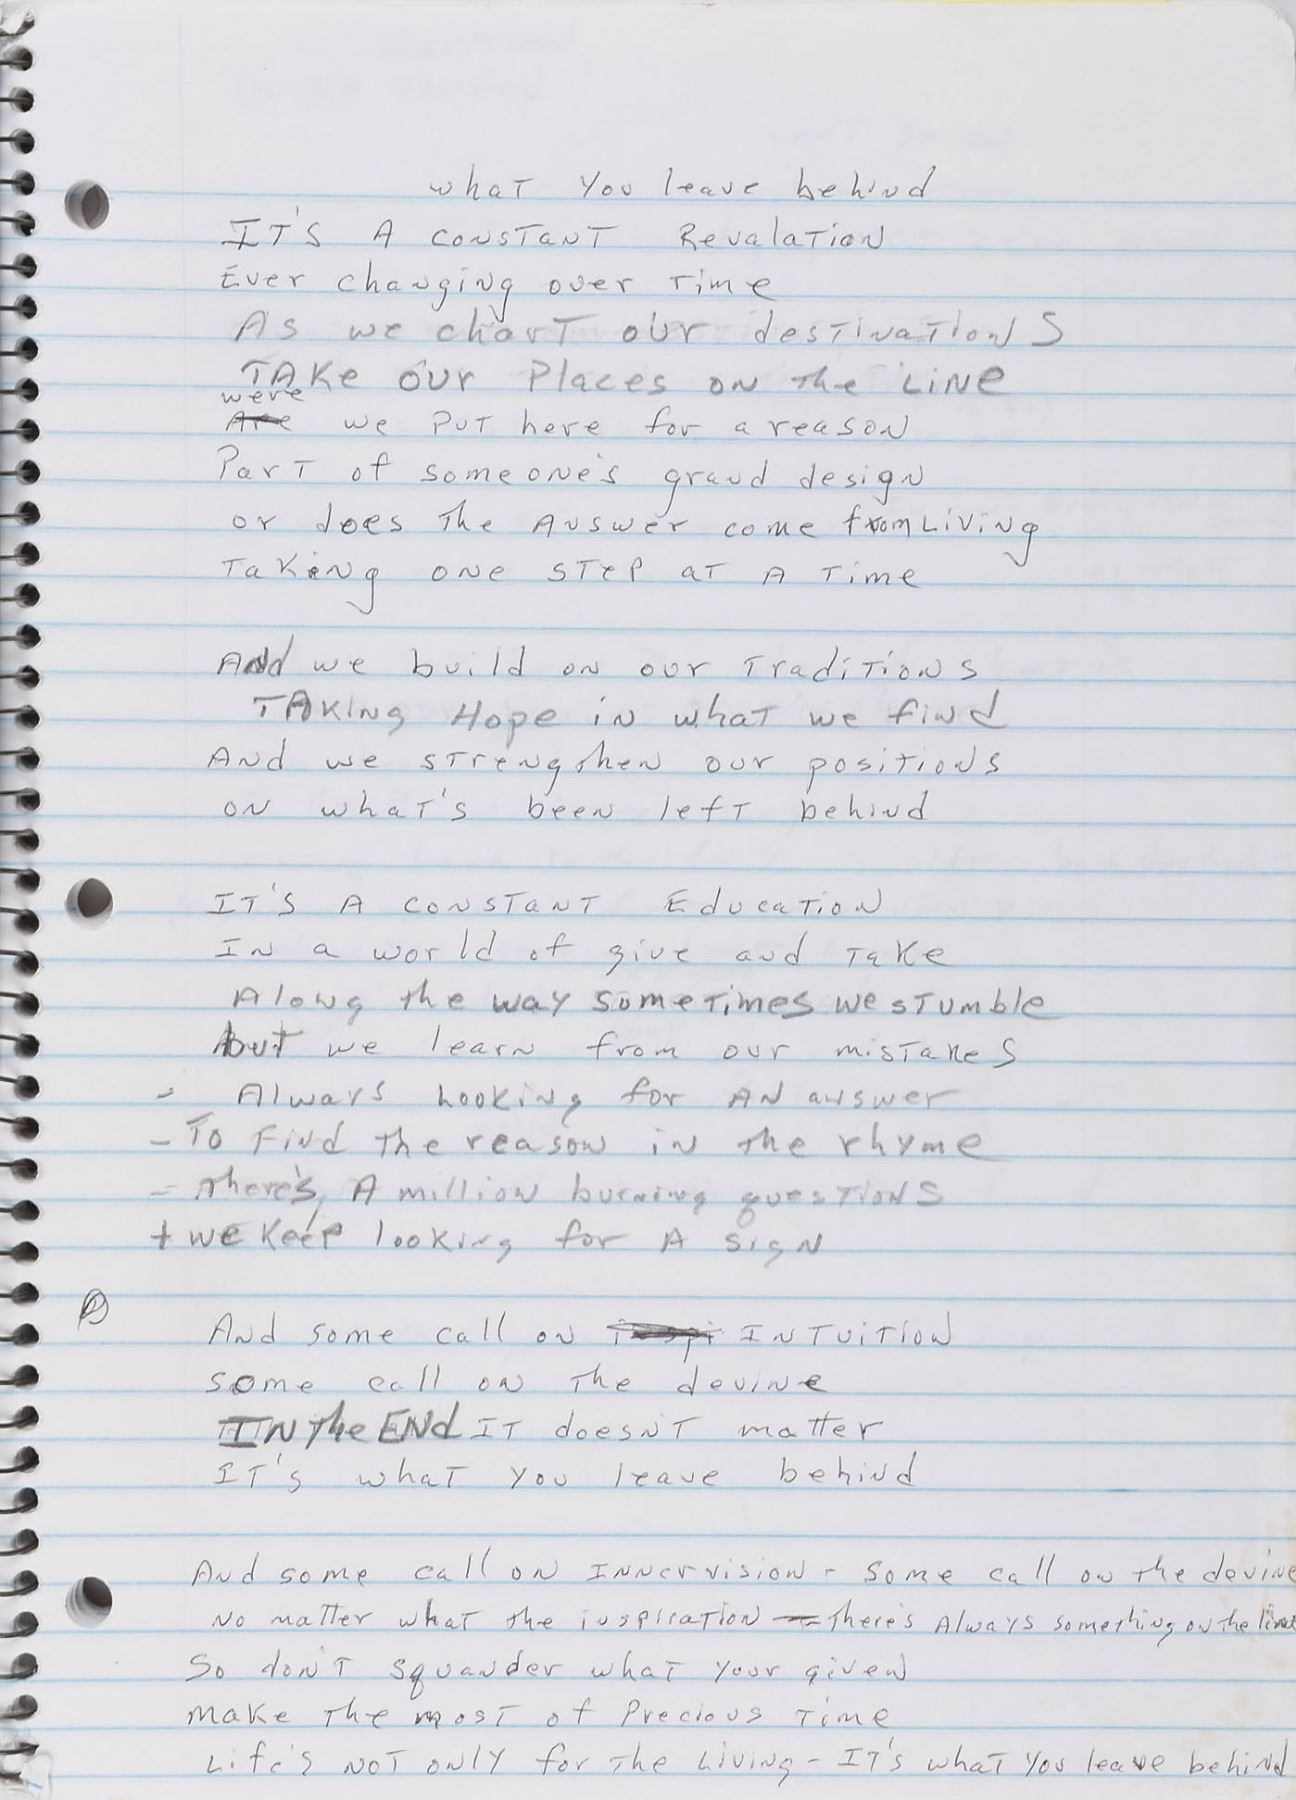 what you leave behind
It's A constant Revalation
Ever changing over Time
As we chart our destinations
TAKe our Places on the LiNe
were
Are we put here for a reason
Part of someone's grand design
or does the Answer come from Living
Taking one step at A Time
And we build on our Traditions
TAKing Hope in what we find
And we strengthen our positions
on what's been left behind
It's A constant Education
In a world of give and Take
Along the way sometimes we stumble
but we learn from our mistakes
- Always Looking for AN answer
- To Find the reason in the rhyme
- there's A million burning questions
+ we keep looking for A sign
And some call on inspi INTuition
some call on the devine
IN The ENd IT doesn't matter
It's what you leave behind
And some call on Innervision - some call on the devine
No matter what the inspiration - There's Always something on the line
So don't squander what your given
Make The most of Precious Time
Life's Not only for The Living - It's what you leave behind